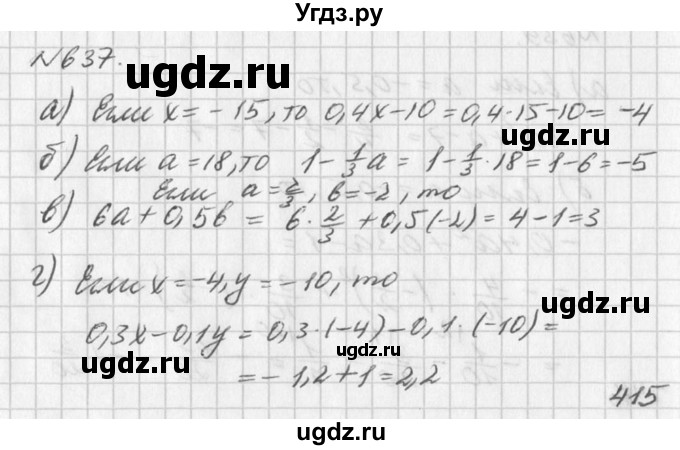 Угдз.ру
№637.
ugdz.ru
ugdz.ru
а) Если x = - 15, то 0,4x-10 = 0,4·15-10 = -4
б) Если a = 18, то 1 - 1/3 a = 1 - 1/3 · 18 = 1-6 = -5
Если a = 2/3, b = -2, то
в) 6a + 0,5b = 6 · 2/3 + 0,5(-2) = 4 - 1 = 3
ugdz.ru
ugdz.ru
г) Если x = -4, y = - 10, то
ugdz.ru
0,3x - 0,1y = 0,3·(-4) - 0,1·(-10) =
ugdz.ru
ugdz.ru
= - 1,2 + 1 = 2,2
415
ugdz.ru